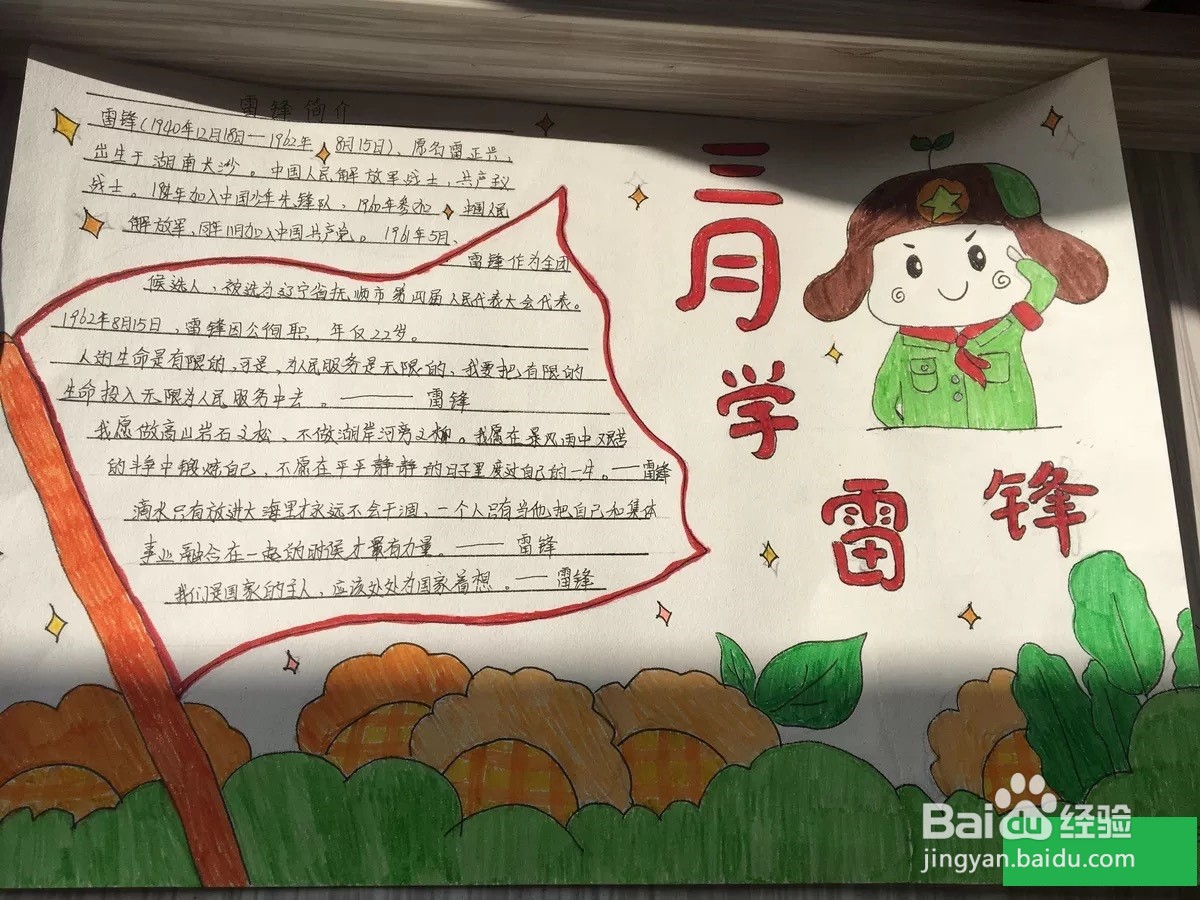 雷锋简介
雷锋(1940年12月18日—1962年8月15日)、原名雷正兴,
出生于湖南长沙。中国人民解放军战士,共产主义
战士。1954年加入中国少年先锋队、1960年参加中国人民
解放军、同年11月加入中国共产党。1961年5月、
雷锋作为全团
候选人,被选为辽宁省抚顺市第四届人民代表大会代表。
1962年8月15日,雷锋因公殉职,年仅22岁。
人的生命是有限的,可是,为人民服务是无限的,我要把有限的
生命投入无限为人民服务中去。——雷锋
我愿做高山岩石之松,不做湖岸河旁之柳。我愿在暴风雨中艰苦
的斗争中锻炼自己,不愿在平平静静的日子里度过自己的一生。—雷锋
滴水只有放进大海里才永远不会干涸,一个人只有当他把自己和集体
事业融合在一起的时候才最有力量。——雷锋
我们是国家的主人,应该处处为国家着想。——雷锋
三月学雷锋
Baidu经验
jingyan.baidu.com